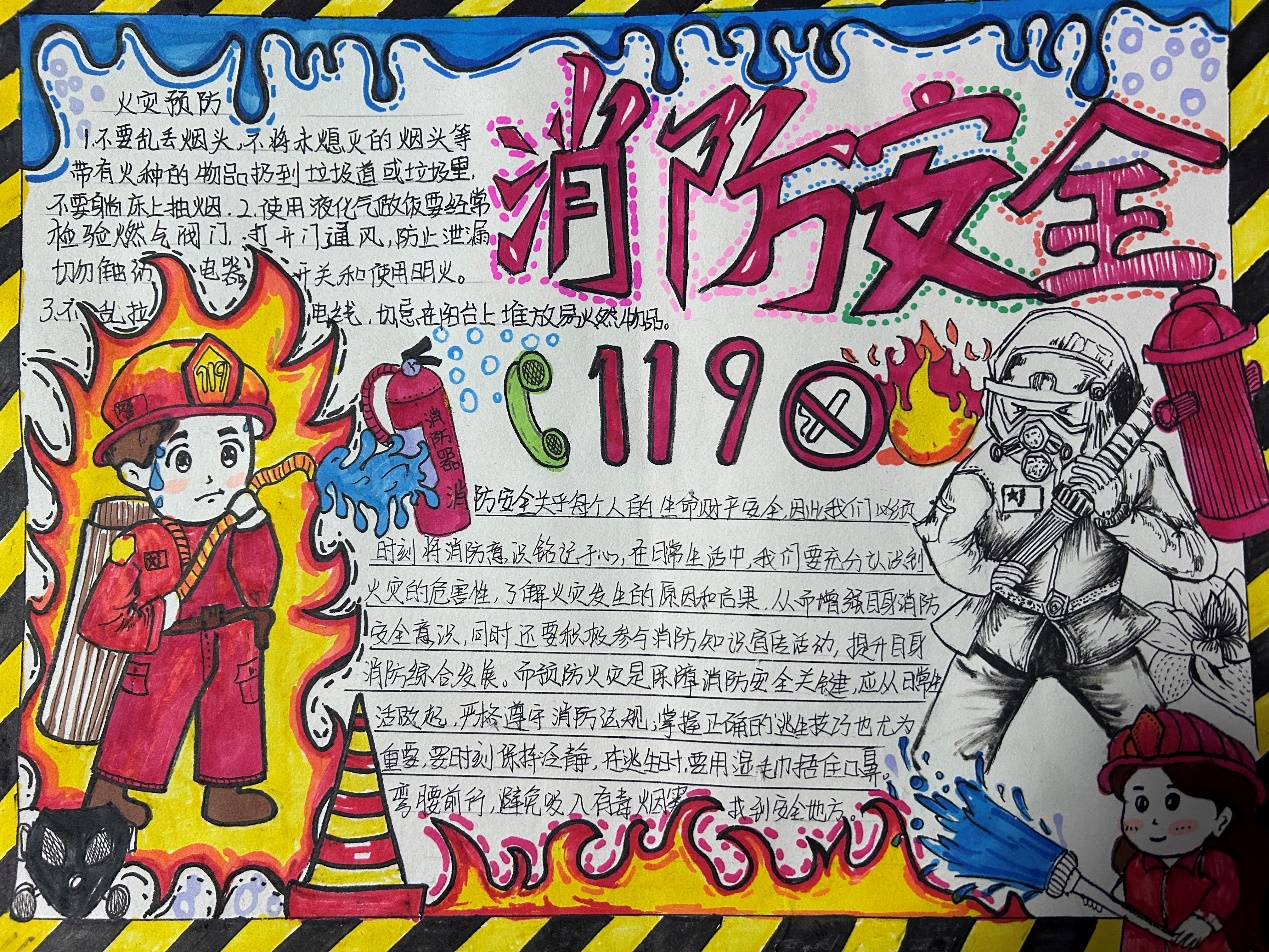 消防安全
火灾预防
1.不要乱丢烟头,不将未熄灭的烟头等
带有火种的物品扔到垃圾道或垃圾里,
不要躺床上抽烟.2.使用液化气做饭要经常
检验燃气阀门,打开门通风,防止泄漏
切勿触 电器 开关和使用明火。
3.不 乱拉 电线,切忌在阳台上堆放易燃物品。
119
119
消防器
消防安全关乎每个人的生命财产安全,因此我们必须
时刻将消防意识铭记于心,在日常生活中,我们要充分认识到
火灾的危害性,了解火灾发生的原因和后果,从而增强自身消防
安全意识,同时还要积极参与消防知识宣传活动,提升自身
消防综合发展。而预防火灾是保障消防安全关键,应从日常生
活做起,严格遵守消防法规,掌握正确的逃生技巧也尤为
重要,要时刻保持冷静,在逃生时,要用湿毛巾捂住口鼻。
弯腰前行,避免吸入有毒烟雾 找到安全地方。